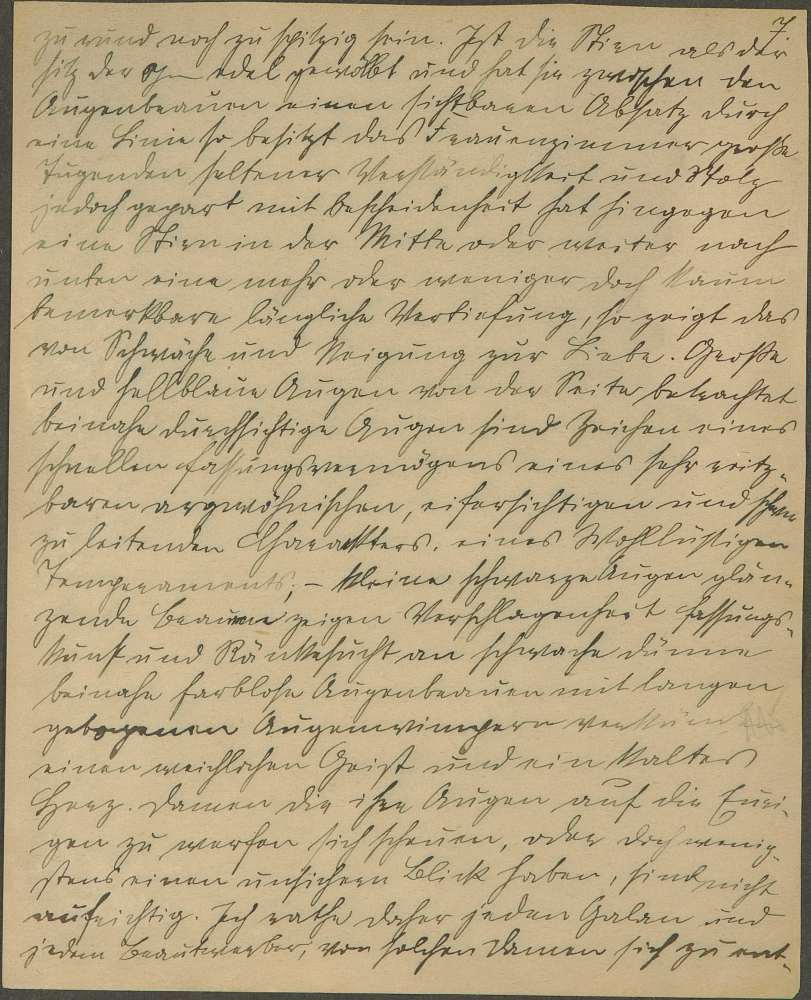 7.
zu rund noch zu spitzig sein. Ist die Stirn als der
sitz der edel gewölbt und hat sie zwischen den
Augenbrauen einen sichtbaren Absatz durch
eine Linie so besitzt das Frauenzimmer große
Tugenden seltener Verständigkeit und Stolz
jedoch gepart mit bescheidenheit hat hingegen
eine Stirn in der Mitte oder weiter nach
unten eine mehr oder weniger doch kaum
bemerkbare längliche Vertiefung, so zeigt das
von Schwäche und Neigung zur Liebe. Große
und hellblaue Augen von der Seite betrachtet
beinahe durchsichtige Augen sind Zeichen eines
schnellen fassungsvermögens eines sehr reitz-
baren argwöhnischen, eifersichtigen und schwer
zu leitenden Charackters. eines Wohllüstigen
Temperaments; – kleine schwarze Augen glän-
zende Braune zeigen Verschlagenheit fassungs-
kunst und Ränkesucht an schwache dünne
beinahe farblose Augenbrauen mit langen
gebogenen Augenwimpern
einen weichlichen Geist und ein kaltes
Herz. Damen die ihre Augen auf die Euri-
gen zu werfen sich scheuen, oder doch wenig-
stens einen unsichern Blick haben, sind nicht
aufrichtig. Ich rathe daher jeden Galan und
jedem Brautwerber, von solchen Damen sich zu ent-